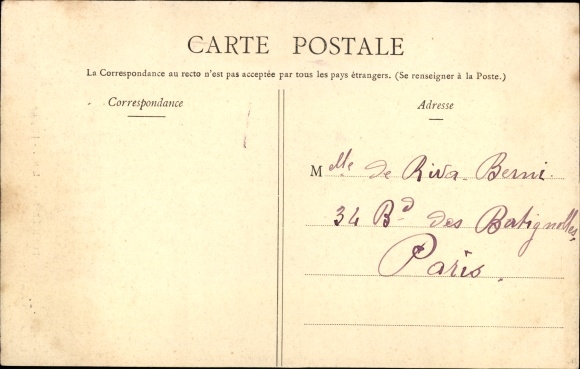 CARTE POSTALE
La Correspondance au recto n'est pas acceptée par tous les pays étrangers. (Se renseigner à la Poste.)
Correspondance
Adresse
Mlle de Riva-Berni
34 Bd des Batignolles,
Paris.